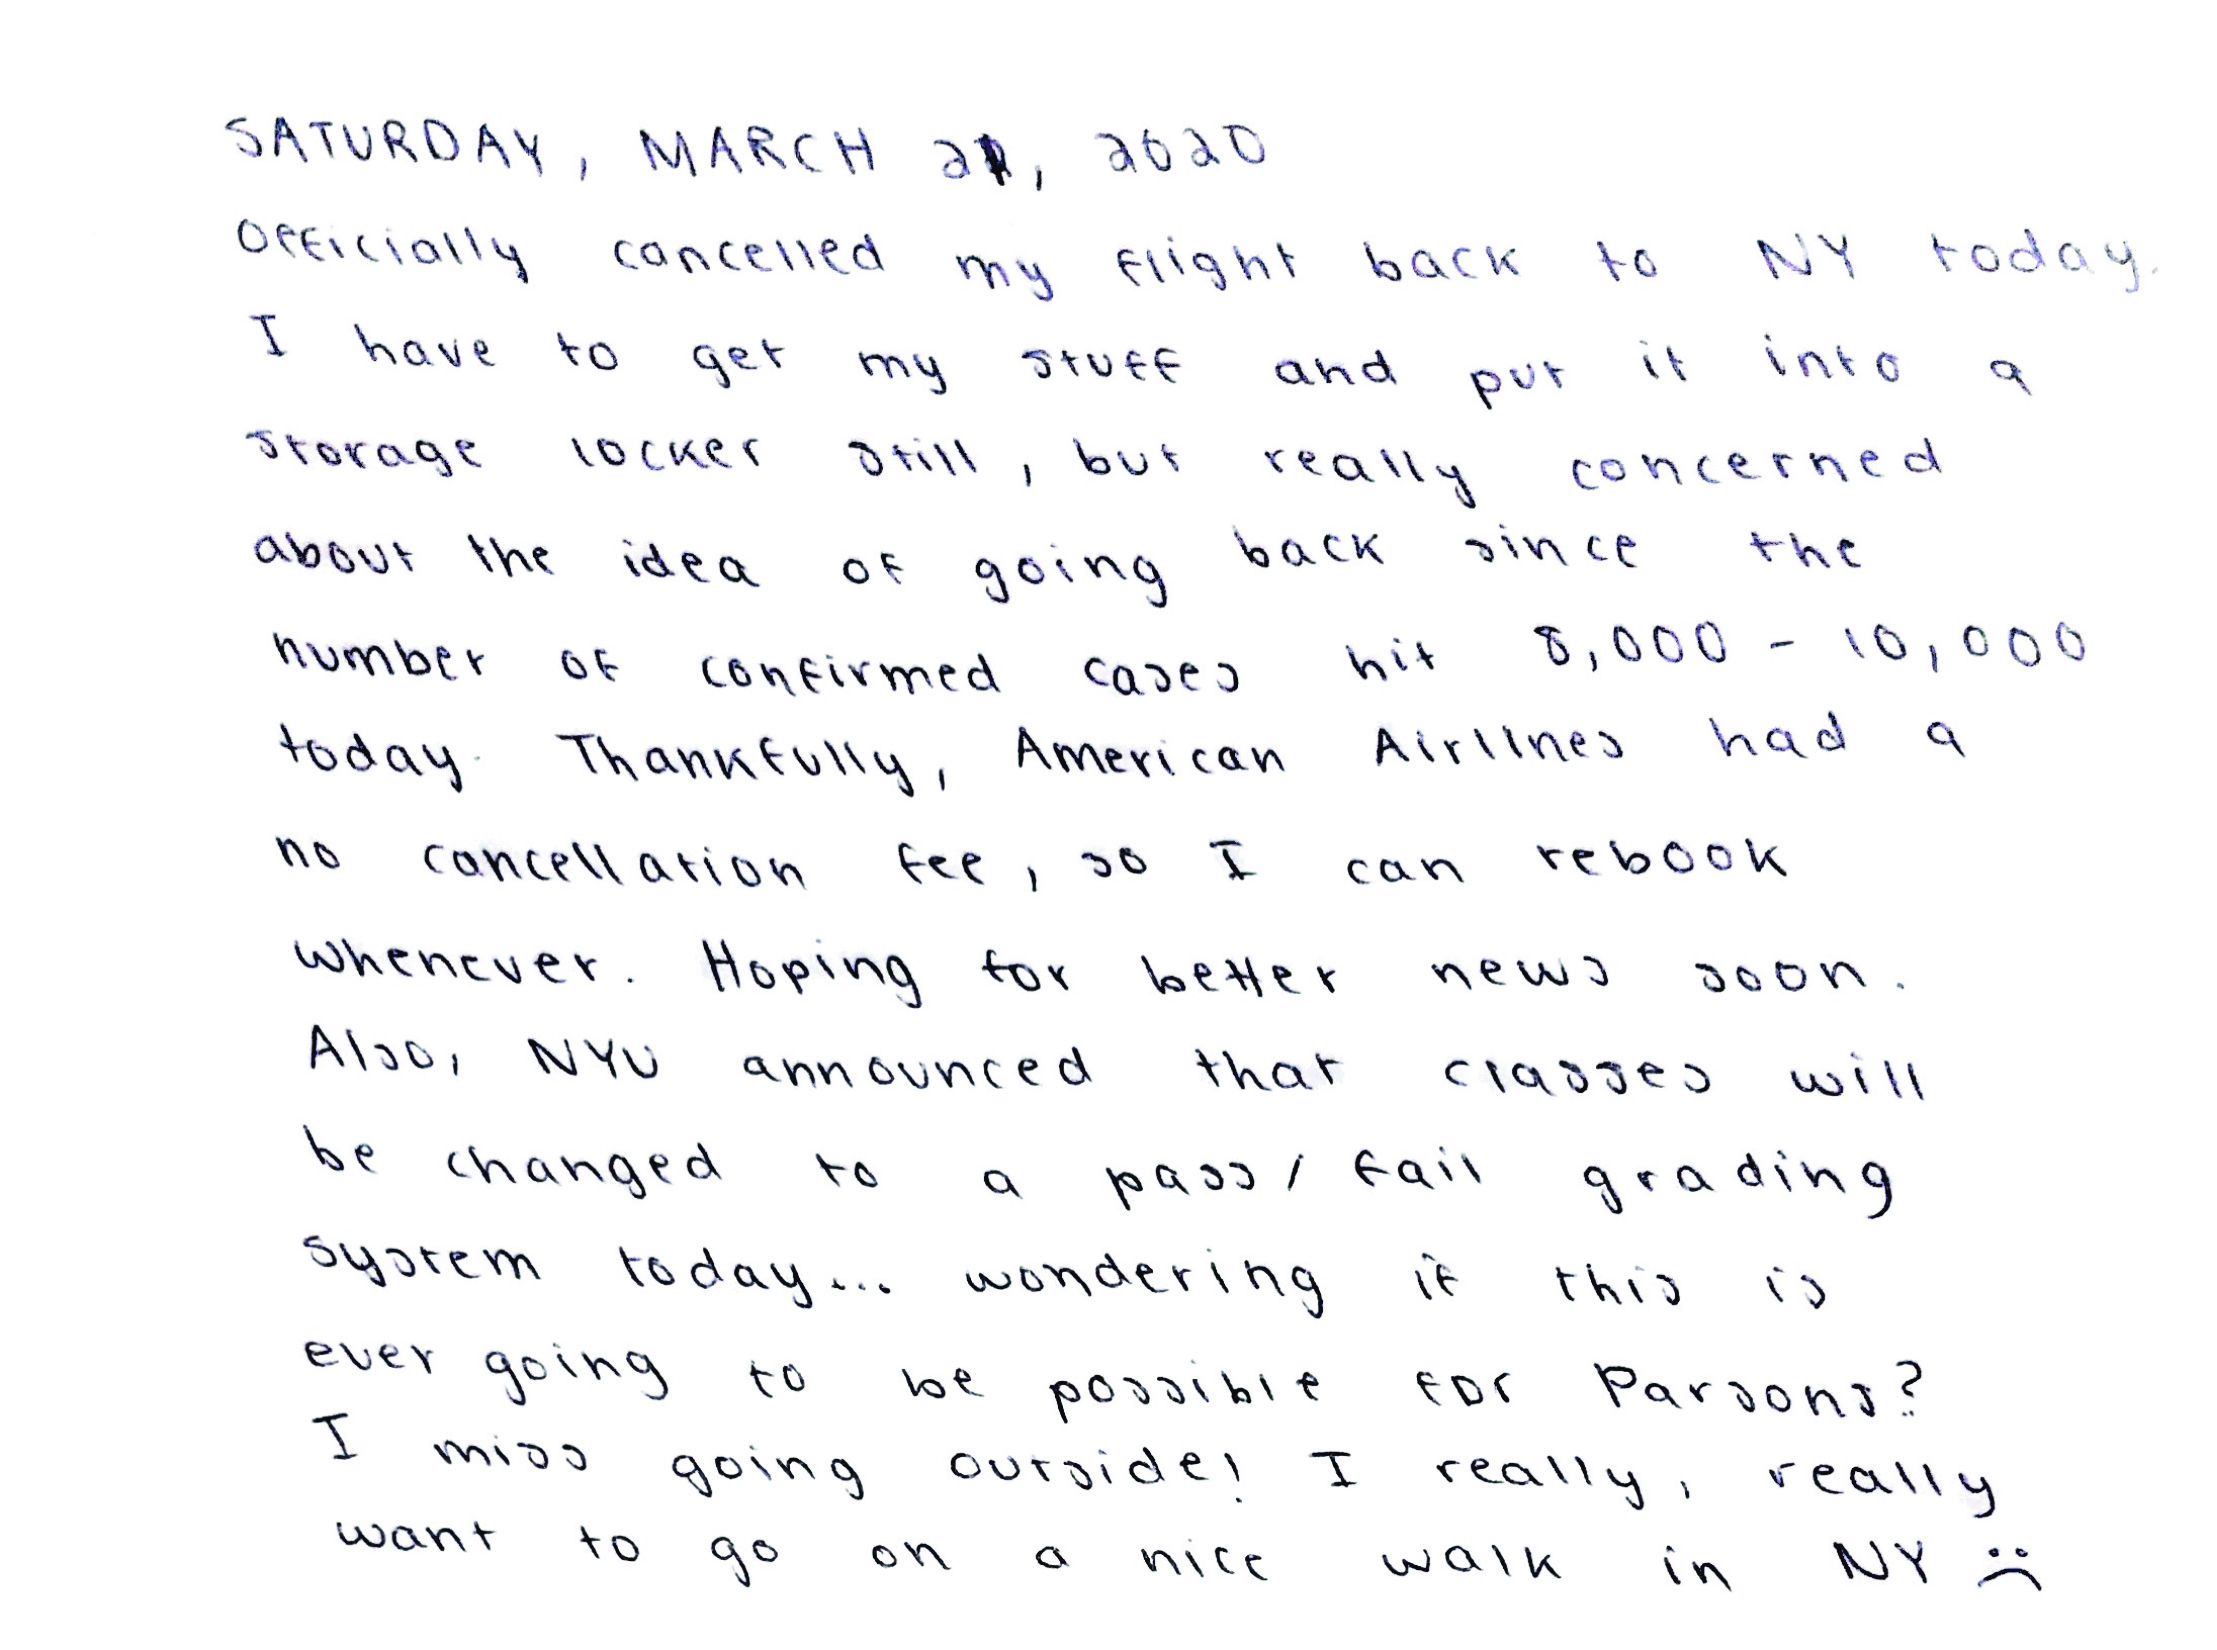 SATURDAY, MARCH 21, 2020
Officially cancelled my flight back to NY today.
I have to get my stuff and put it into a
storage locker still, but really concerned
about the idea of going back since the
number of confirmed cases hit 8,000 - 10,000
today. Thankfully, American Airlines had a
no cancellation fee, so I can rebook
whenever. Hoping for better news soon.
Also, NYU announced that classes will
be changed to a pass/fail grading
system today... wondering if this is
ever going to be possible for Parsons?
I miss going outside! I really, really
want to go on a nice walk in NY :(